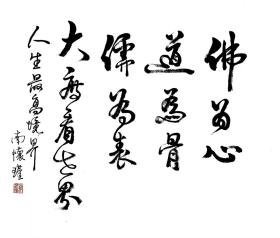 佛为心
道為骨
儒為表
大度看世界
人生最高境界
南懷瑾